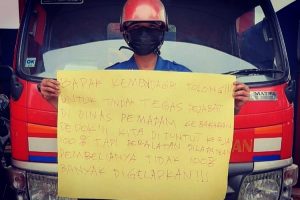 BAPAK KEMENDAGRI TOLONG!!!
UNTUK TINDAK TEGAS PEJABAT
DI DINAS PEMADAM KEBAKARAN
DEPOK!!! KITA DI TUNTUT KERJA
100% TAPI PERALATAN DILAPANGAN
PEMBELIANYA TIDAK 100%
BANYAK DIGELAPKAN!!!